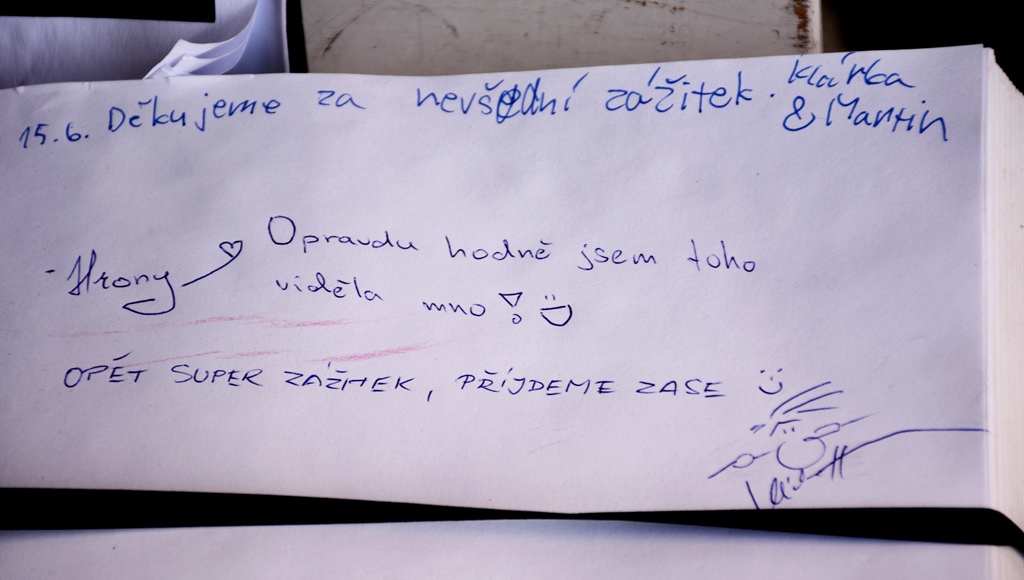 15.6. Děkujeme za nevšední zážitek. Klárka
& Martin
Opravdu hodně jsem toho
- Hrony
viděla mno!
OPĚT SUPER ZÁŽITEK, PŘÍJDEME ZASE